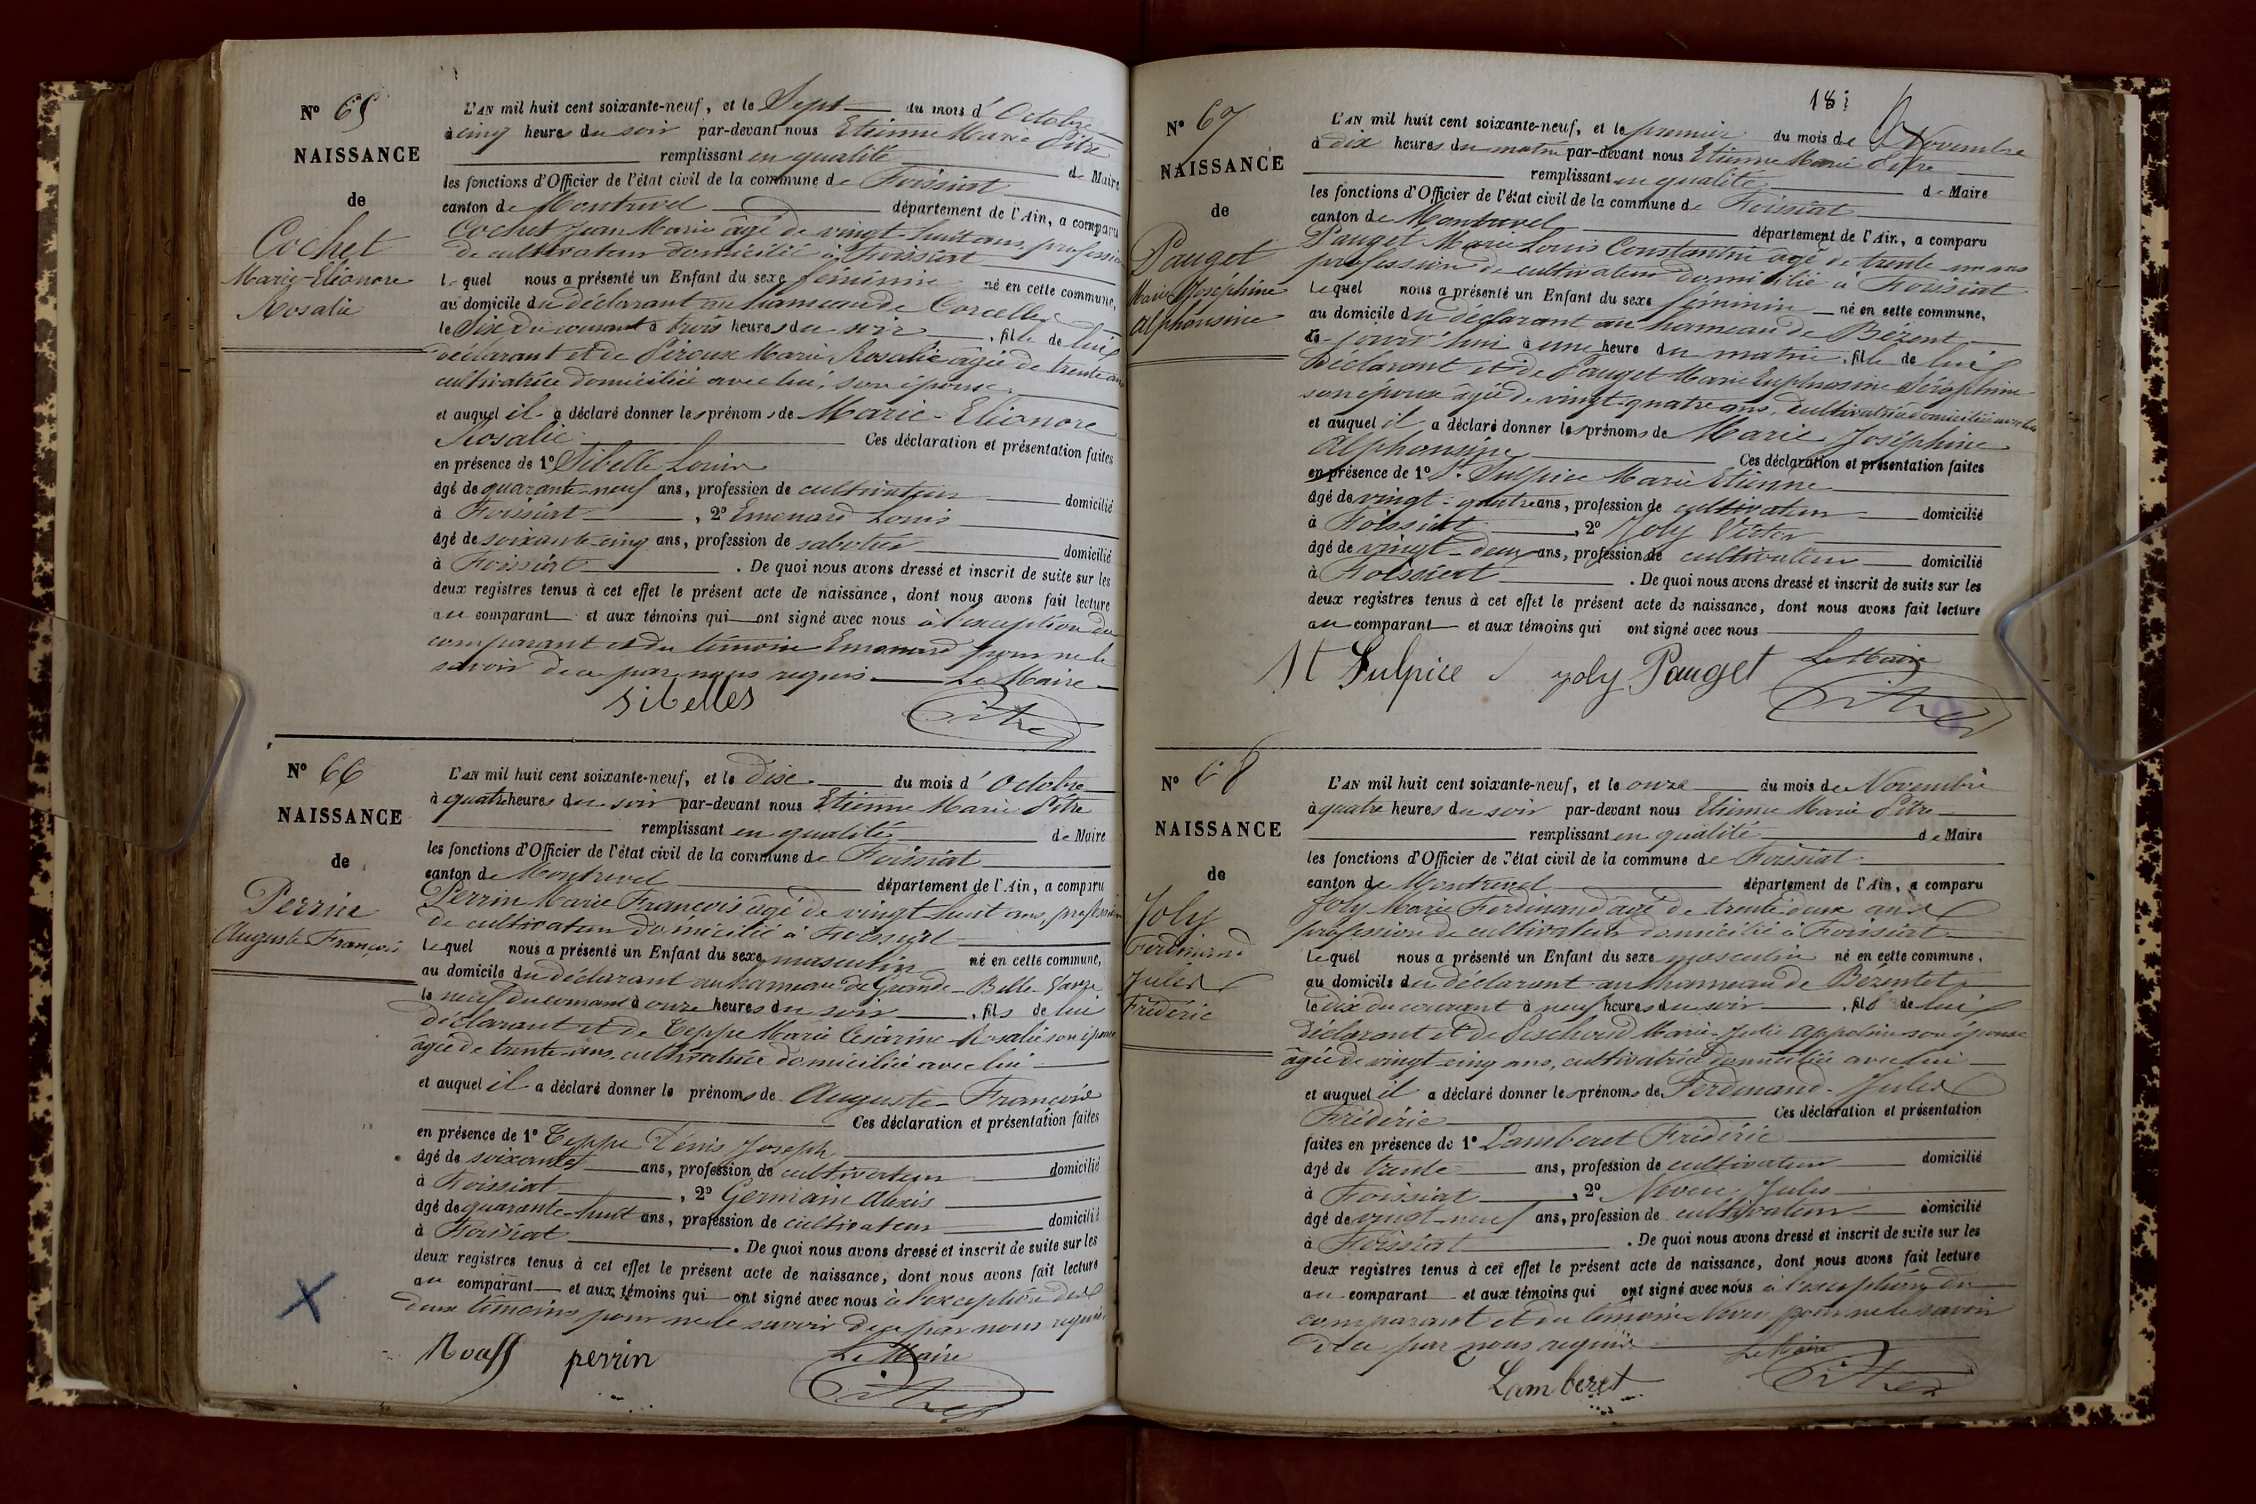 Nº 65
NAISSANCE
de
Cochet
Marie-Eléonore
Rosalie
L'AN mil huit cent soixante-neuf, et le Sept du mois d'Octobre
à cinq heures du soir par-devant nous Etienne Marie Pitre
remplissant en qualité de Maire
les fonctions d'Officier de l'état civil de la commune de Foissiat
canton de Montrevel département de l'Ain, a comparu
Cochet Jean Marie âgé de vingt huit ans, profession
de cultivateur domicilié à Foissiat
lequel nous a présenté un Enfant du sexe féminin né en cette commune,
au domicile du déclarant au hameau de Corcelles
le Six du courant à trois heures du soir, fille de lui
déclarant et de Piroux Marie Rosalie âgée de trente ans
cultivatrice domiciliée avec lui, son épouse
et auquel il a déclaré donner les prénoms de Marie-Eléonore
Rosalie Ces déclaration et présentation faites
en présence de 1º Sibelle Louis
âgé de quarante-neuf ans, profession de cultivateur domicilié
à Foissiat, 2º Emonard Louis
âgé de soixante-cinq ans, profession de sabotier domicilié
à Foissiat. De quoi nous avons dressé et inscrit de suite sur les
deux registres tenus à cet effet le présent acte de naissance, dont nous avons fait lecture
au comparant et aux témoins qui ont signé avec nous à l'exception du
comparant et du témoin Emonard pour ne le
savoir de ce par nous requis Le Maire
Sibelles Pitre
Nº 66
NAISSANCE
de
Perrin
Auguste François
L'AN mil huit cent soixante-neuf, et le Dix du mois d'Octobre
à quatre heures du soir par-devant nous Etienne Marie Pitre
remplissant en qualité de Maire
les fonctions d'Officier de l'état civil de la commune de Foissiat
canton de Montrevel département de l'Ain, a comparu
Perrin Marie François âgé de vingt huit ans, profession
de cultivateur domicilié à Foissiat
Lequel nous a présenté un Enfant du sexe masculin né en cette commune,
au domicile du déclarant au hameau de Grande-Belle-
le neuf du courant à onze heures du soir, fils de lui
déclarant et de Teppe Marie Césarine Rosalie son épouse
âgée de trente ans, cultivatrice domiciliée avec lui
et auquel il a déclaré donner le prénoms de Auguste-François
Ces déclaration et présentation faites
en présence de 1º Teppe Denis Joseph
âgé de soixante ans, profession de cultivateur domicilié
à Foissiat, 2º Germain Alexis
âgé de quarante-huit ans, profession de cultivateur domicilié
à Foissiat. De quoi nous avons dressé et inscrit de suite sur les
deux registres tenus à cet effet le présent acte de naissance, dont nous avons fait lecture
au comparant et aux témoins qui ont signé avec nous à l'exception des
deux témoins pour ne le savoir de ce par nous requis
perrin Le Maire
Pitre
183
Nº 67
NAISSANCE
de
Pauget
Marie Joséphine
Alphonsine
L'AN mil huit cent soixante-neuf, et le premier du mois de Novembre
à dix heures du matin par-devant nous Etienne Marie Pitre
remplissant en qualité de Maire
les fonctions d'Officier de l'état civil de la commune de Foissiat
canton de Montrevel département de l'Ain, a comparu
Pauget Marie Louis Constantin âgé de trente un ans
profession de cultivateur domicilié à Foissiat
Lequel nous a présenté un Enfant du sexe féminin né en cette commune,
au domicile du déclarant au hameau de Bézent
jourd'hui à une heure du matin, fille de lui
Déclarant et de Pauget Marie Euphrosine Séraphine
son épouse âgée de vingt-quatre ans, cultivatrice domiciliée avec lui
et auquel il a déclaré donner les prénoms de Marie Joséphine
Alphonsine Ces déclaration et présentation faites
en présence de 1º St Sulpice Marie Etienne
âgé de vingt-quatre ans, profession de cultivateur domicilié
à Foissiat, 2º Joly Victor
âgé de vingt-deux ans, profession de cultivateur domicilié
à Foissiat. De quoi nous avons dressé et inscrit de suite sur les
deux registres tenus à cet effet le présent acte de naissance, dont nous avons fait lecture
au comparant et aux témoins qui ont signé avec nous
St Sulpice joly Pauget Le Maire
Pitre
Nº 68
NAISSANCE
de
Joly
Ferdinand
Jules
Frédéric
L'AN mil huit cent soixante-neuf, et le onze du mois de Novembre
à quatre heures du soir par-devant nous Etienne Marie Pitre
remplissant en qualité de Maire
les fonctions d'Officier de l'état civil de la commune de Foissiat
canton de Montrevel département de l'Ain, a comparu
Joly Marie Ferdinand âgé de trente deux ans
profession de cultivateur domicilié à Foissiat
Lequel nous a présenté un Enfant du sexe masculin né en cette commune,
au domicile du déclarant au hameau de Bézentet
le dix du courant à neuf heures du soir, fils de lui
déclarant et de Marie-Julie son épouse
âgée de vingt-cinq ans, cultivatrice domiciliée avec lui
et auquel il a déclaré donner les prénoms de Ferdinand-Jules
Frédéric Ces déclaration et présentation
faites en présence de 1º Lamberet Frédéric
âgé de trente ans, profession de cultivateur domicilié
à Foissiat, 2º Jules
âgé de vingt-neuf ans, profession de cultivateur domicilié
à Foissiat. De quoi nous avons dressé et inscrit de suite sur les
deux registres tenus à cet effet le présent acte de naissance, dont nous avons fait lecture
au comparant et aux témoins qui ont signé avec nous à l'exception du
comparant et du témoin pour ne le savoir
de ce par nous requis Le Maire
Lamberet Pitre